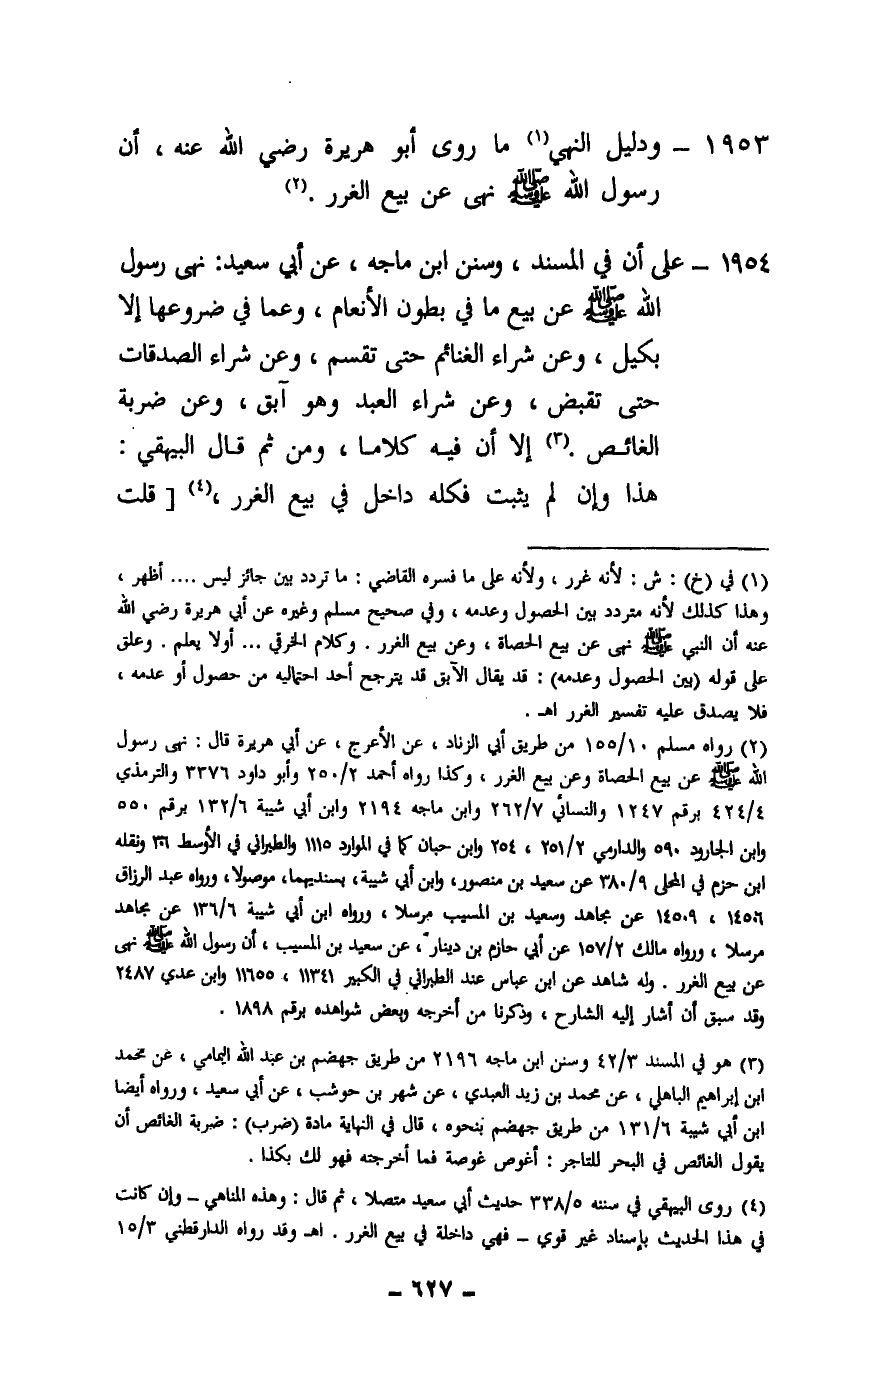 ١٩٥٣ ــ ودليل النهي(١) ما روى أبو هريرة رضي الله عنه ، أن
رسول الله ﷺ نهى عن بيع الغرر .(٢)
١٩٥٤ ــ على أن في المسند ، وسنن ابن ماجه ، عن أبي سعيد: نهى رسول
الله ﷺ عن بيع ما في بطون الأنعام ، وعما في ضروعها إلا
بكيل ، وعن شراء الغنائم حتى تقسم ، وعن شراء الصدقات
حتى تقبض ، وعن شراء العبد وهو آبق ، وعن ضربة
الغائص .(٣) إلا أن فيه كلاما ، ومن ثم قال البيهقي :
هذا وإن لم يثبت فكله داخل في بيع الغرر ،(٤) [ قلت
(١) في (خ) : ش : لأنه غرر ، ولأنه على ما فسره القاضي : ما تردد بين جائز ليس .... أظهر ،
وهذا كذلك لأنه متردد بين الحصول وعدمه ، وفي صحيح مسلم وغيره عن أبي هريرة رضي الله
عنه أن النبي ﷺ نهى عن بيع الحصاة ، وعن بيع الغرر . وكلام الخرقي ... أولا يعلم . وعلق
على قوله (بين الحصول وعدمه) : قد يقال الآبق قد يترجح أحد احتماليه من حصول أو عدمه ،
فلا يصدق عليه تفسير الغرر اهـ .
(٢) رواه مسلم ١٥٥/١٠ من طريق أبي الزناد ، عن الأعرج ، عن أبي هريرة قال : نهى رسول
الله ﷺ عن بيع الحصاة وعن بيع الغرر ، وكذا رواه أحمد ٢٥٠/٢ وأبو داود ٣٣٧٦ والترمذي
٤٢٤/٤ برقم ١٢٤٧ والنسائي ٢٦٢/٧ وابن ماجه ٢١٩٤ وابن أبي شيبة ١٣٢/٦ برقم ٥٥٠
وابن الجارود ٥٩٠ والدارمي ٢٥١/٢ ، ٢٥٤ وابن حبان كما في الموارد ١١١٥ والطبراني في الأوسط ونقله
ابن حزم في المحلى ٣٨٠/٩ عن سعيد بن منصور، وابن أبي شيبة، بسنديهما، موصولا، ورواه عبد الرزاق
١٤٥٠٦ ، ١٤٥٠٩ عن مجاهد وسعيد بن المسيب مرسلا ، ورواه ابن أبي شيبة ١٣٦/٦ عن مجاهد
مرسلا ، ورواه مالك ١٥٧/٢ عن أبي حازم بن دينار ، عن سعيد بن المسيب ، أن رسول الله ﷺ نهى
عن بيع الغرر . وله شاهد عن ابن عباس عند الطبراني في الكبير ١١٣٤١ ، ١١٦٥٥ وابن عدي ٢٤٨٧
وقد سبق أن أشار إليه الشارح ، وذكرنا من أخرجه وبعض شواهده برقم ١٨٩٨ .
(٣) هو في المسند ٤٢/٣ وسنن ابن ماجه ٢١٩٦ من طريق جهضم بن عبد الله اليمامي ، عن محمد
ابن إبراهيم الباهلي ، عن محمد بن زيد العبدي ، عن شهر بن حوشب ، عن أبي سعيد ، ورواه أيضا
ابن أبي شيبة ١٣١/٦ من طريق جهضم بنحوه ، قال في النهاية مادة (ضرب) : ضربة الغائص أن
يقول الغائص في البحر للتاجر : أغوص غوصة فما أخرجته فهو لك بكذا .
(٤) روى البيهقي في سننه ٣٣٨/٥ حديث أبي سعيد متصلا ، ثم قال : وهذه المناهي ــ وإن كانت
في هذا الحديث بإسناد غير قوي ــ فهي داخلة في بيع الغرر . اهـ وقد رواه الدارقطني ١٥/٣
ــ ٦٢٧ ــ